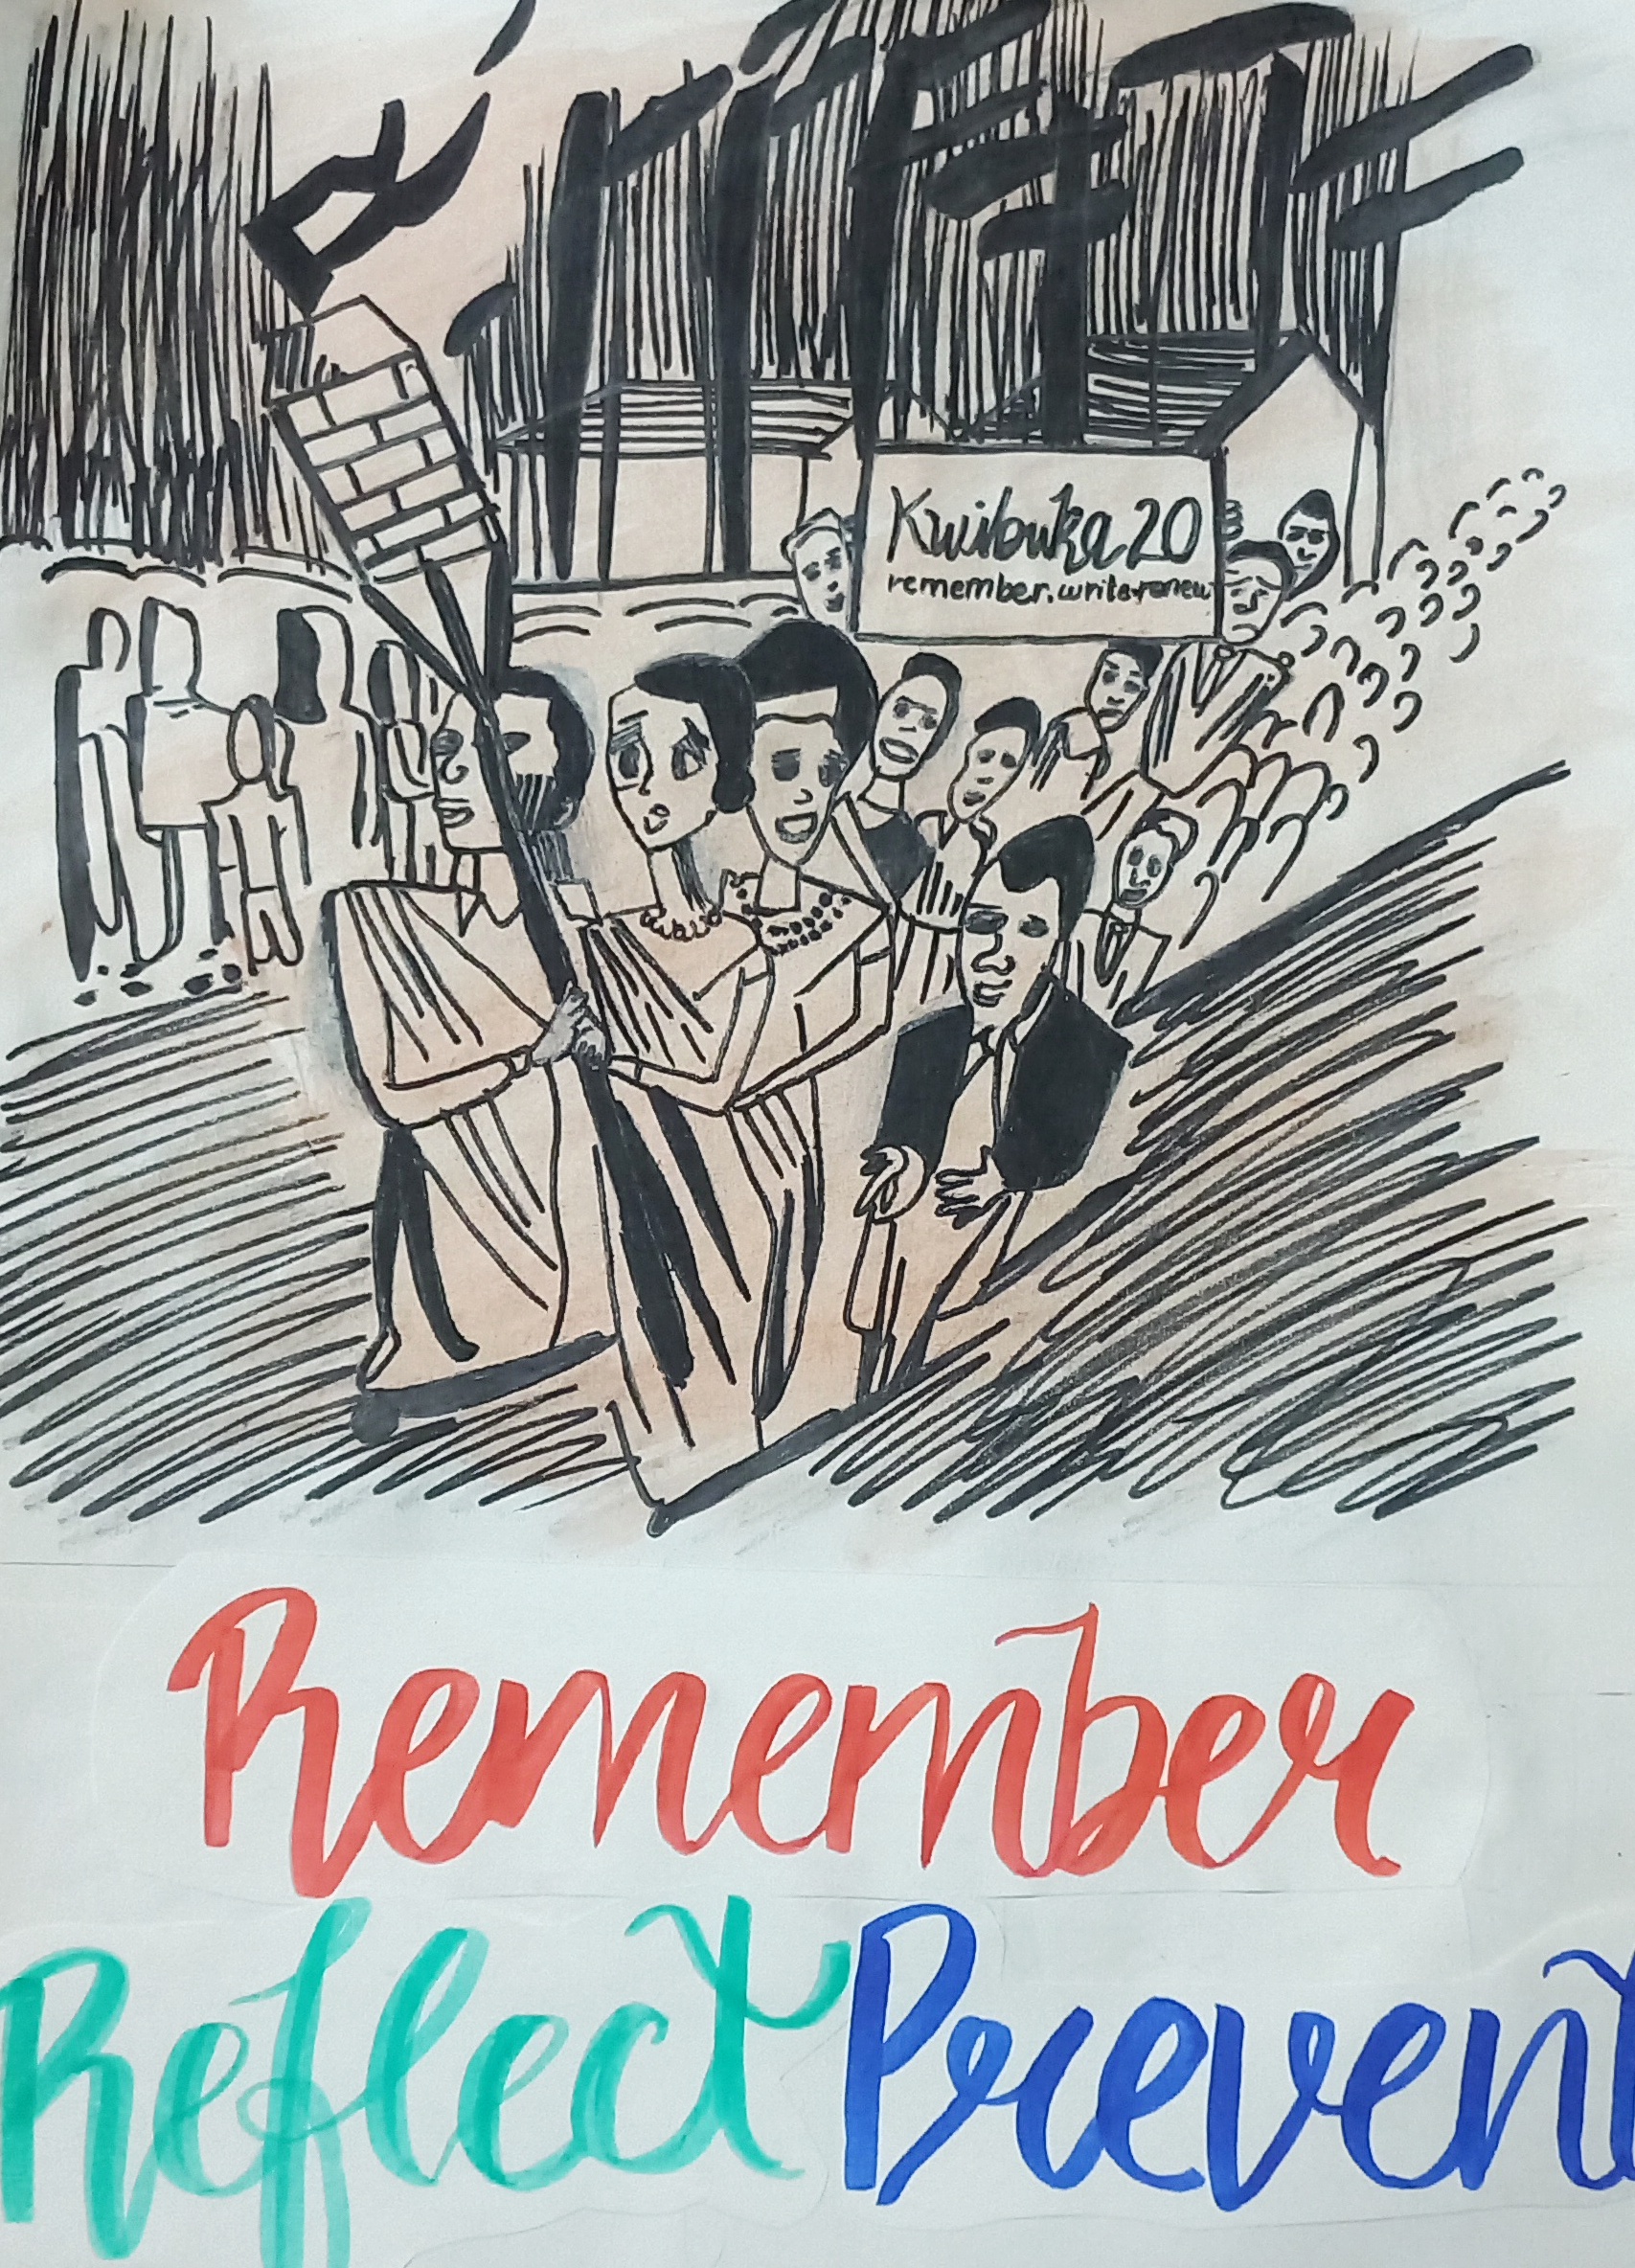 Kwibuka 20
remember.write.renew
Remember
Reflect Prevent